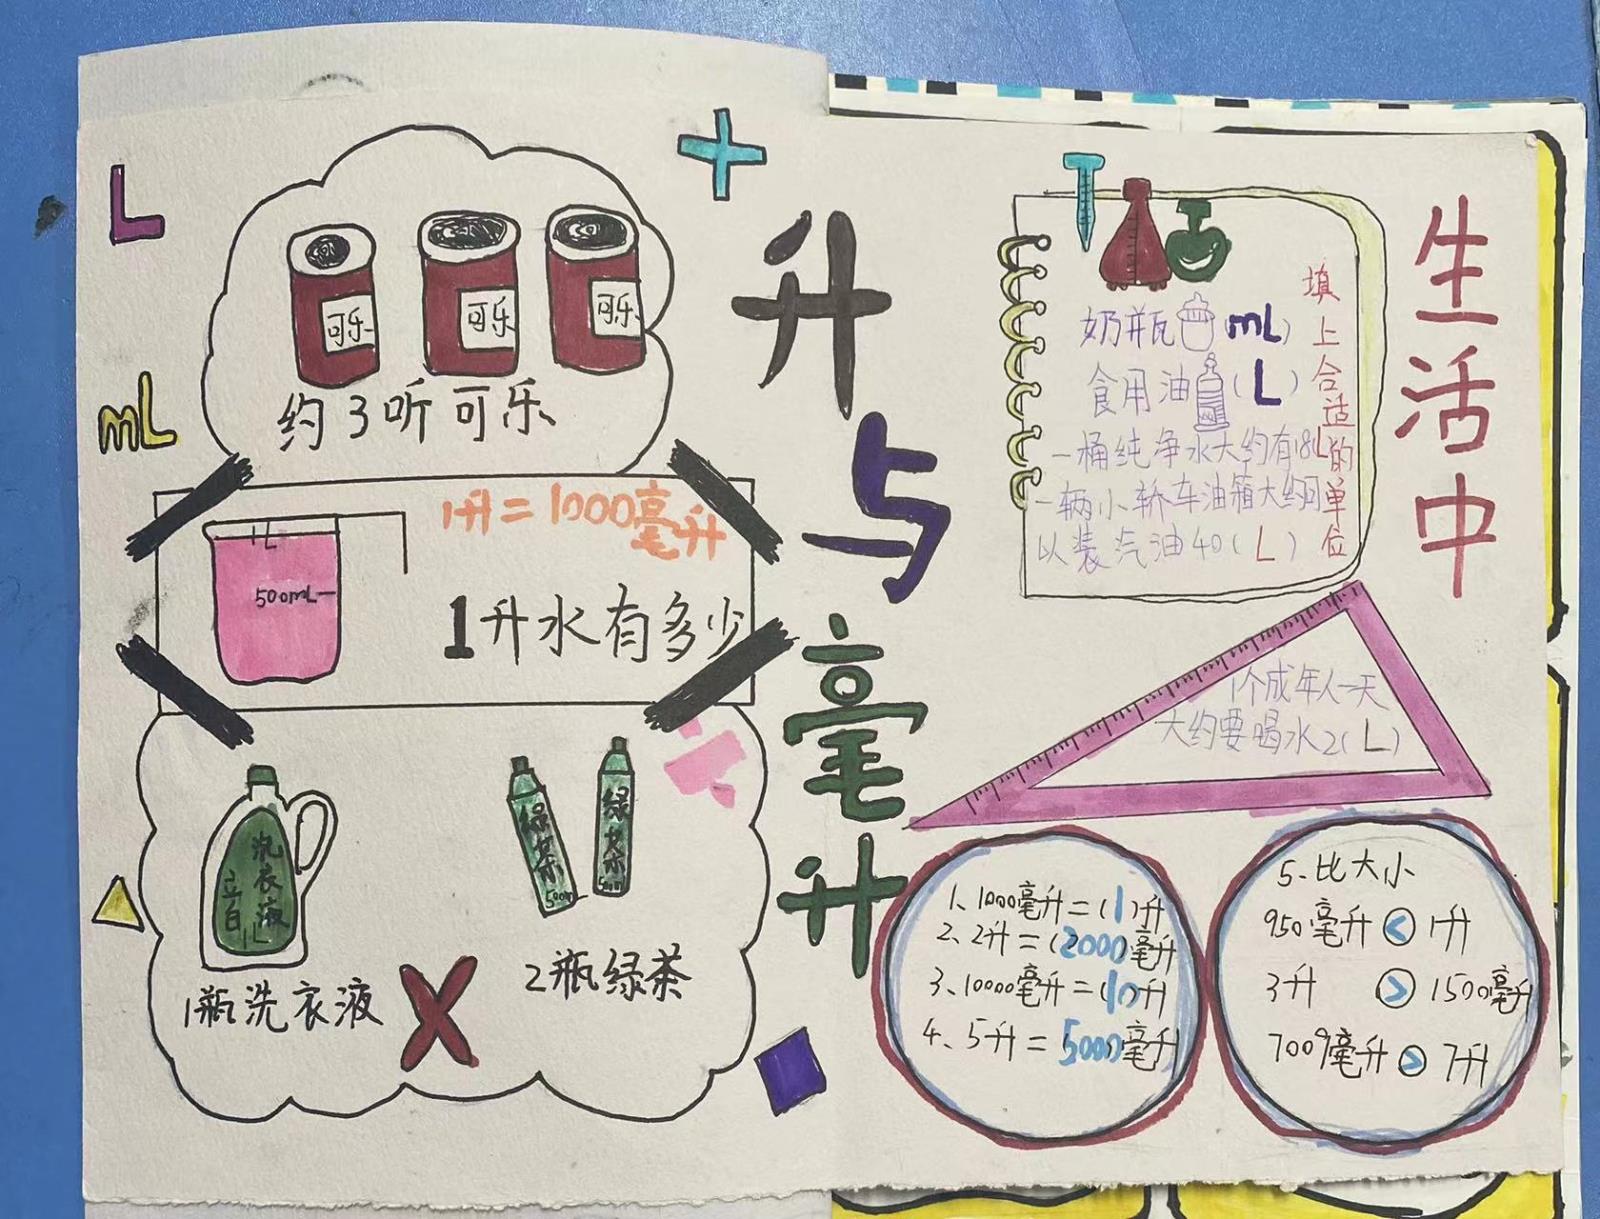 L
mL
可乐
可乐
可乐
约3听可乐
1升=1000毫升
1L
500mL
1升水有多少
洗衣液
立白
1L
绿茶
500m
绿茶
500ml
1瓶洗衣液
2瓶绿茶
升与毫升
生活中
填上合适的单位
奶瓶(mL)
食用油(L)
一桶纯净水大约有18L
一辆小轿车油箱大约可
以装汽油40(L)
1个成年人一天
大约要喝水2(L)
1、1000毫升=(1)升
2、2升=(2000)毫升
3、10000毫升=(10)升
4、5升=5000毫升
5、比大小
950毫升<1升
3升>1500毫升
7009毫升>7升